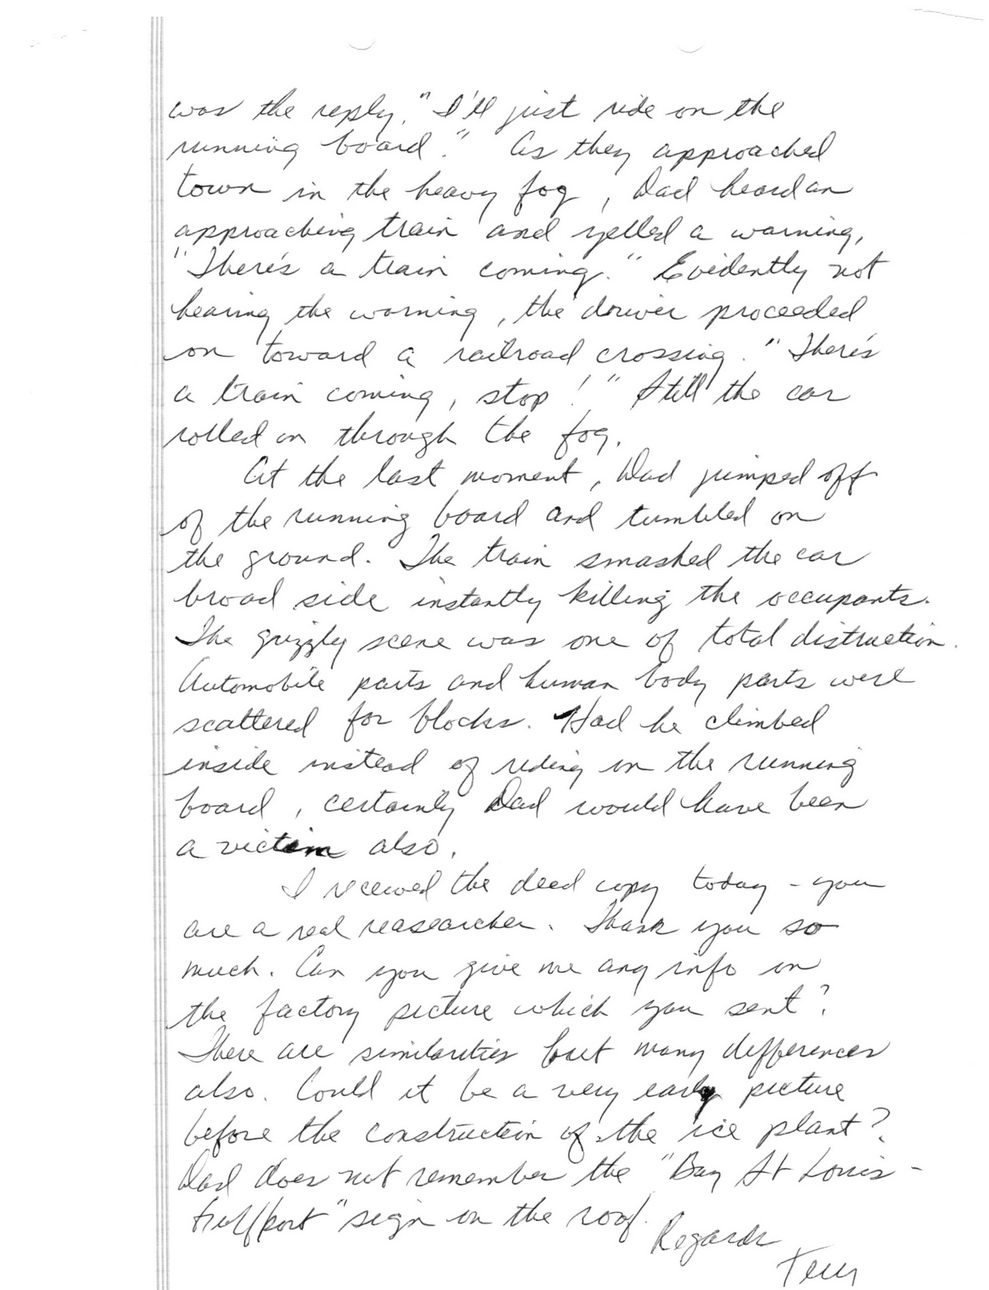 was the reply, "I'll just ride on the
running board." As they approached
town in the heavy fog, Dad heard an
approaching train and yelled a warning,
"There's a train coming." Evidently not
hearing the warning, the driver proceeded
on toward a railroad crossing. "There's
a train coming, stop!" Still the car
rolled on through the fog.
At the last moment, Dad jumped off
of the running board and tumbled on
the ground. The train smashed the car
broad side instantly killing the occupants.
The grizzly scene was one of total distruction.
Automobile parts and human body parts were
scattered for blocks. Had he climbed
inside instead of riding on the running
board, certainly Dad would have been
a victim also.
I received the deed copy today - you
are a real reasearcher. Thank you so
much. Can you give me any info on
the factory picture which you sent?
There are similarities but many differences
also. Could it be a very early picture
before the construction of the ice plant?
Dad does not remember the "Bay St Louis -
Gulfport" sign on the roof.
Regards